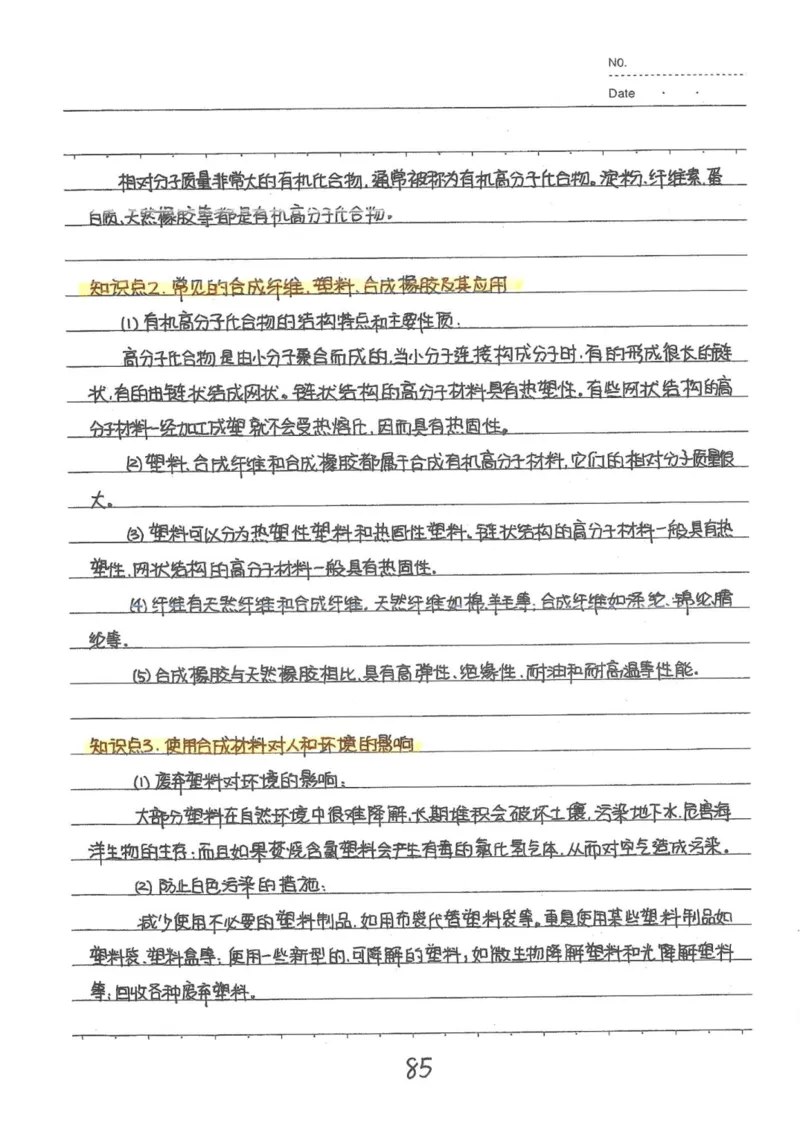 NO.
Date
相对分子质量非常大的有机化合物,通常被称为有机高分子化合物。淀粉、纤维素、蛋
白质、天然橡胶等都是有机高分子化合物。
知识点2.常见的合成纤维、塑料、合成橡胶及其应用
(1)有机高分子化合物的结构特点和主要性质:
高分子化合物是由小分子聚合而成的,当小分子连接构成分子时,有的形成很长的链
状,有的由链状结成网状。链状结构的高分子材料具有热塑性。有些网状结构的高
分子材料一经加工成塑就不会受热熔化,因而具有热固性。
(2)塑料、合成纤维和合成橡胶都属于合成有机高分子材料,它们的相对分子质量很
大。
(3)塑料可以分为热塑性塑料和热固性塑料。链状结构的高分子材料一般具有热
塑性,网状结构的高分子材料一般具有热固性.
(4)纤维有天然纤维和合成纤维,天然纤维如棉,羊毛等;合成纤维如涤纶、锦纶,腈
纶等.
(5)合成橡胶与天然橡胶相比,具有高弹性、绝缘性、耐油和耐高温等性能.
知识点3.使用合成材料对人和环境的影响
(1)废弃塑料对环境的影响:
大部分塑料在自然环境中很难降解,长期堆积会破坏土壤,污染地下水,危害海
洋生物的生存;而且如果焚烧含氯塑料会产生有毒的氯化氢气体,从而对空气造成污染。
(2)防止白色污染的措施:
减少使用不必要的塑料制品,如用布袋代替塑料袋等。重复使用某些塑料制品如
塑料袋、塑料盒等;使用一些新型的、可降解的塑料,如微生物降解塑料和光降解塑料
等;回收各种废弃塑料。
85